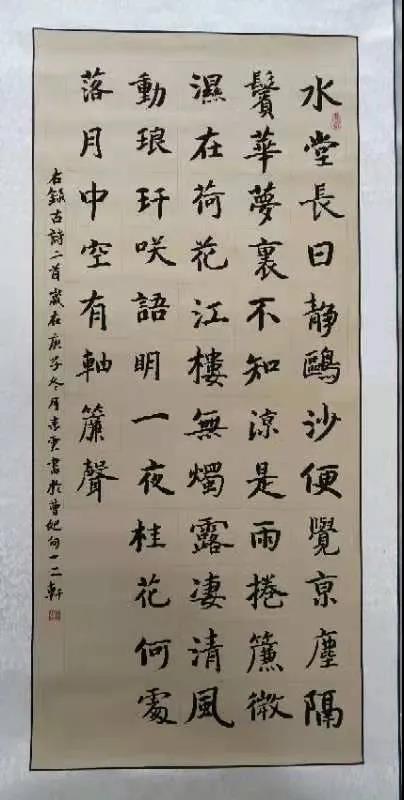 水堂長日靜鷗沙便覺京塵隔
鬢華夢裏不知涼是雨捲簾微
濕在荷花江樓無燭露凄清風
動琅玕咲語明一夜桂花何處
落月中空有軸簾聲
右錄古詩二首歲在庚子冬月書於曹妃甸一二軒